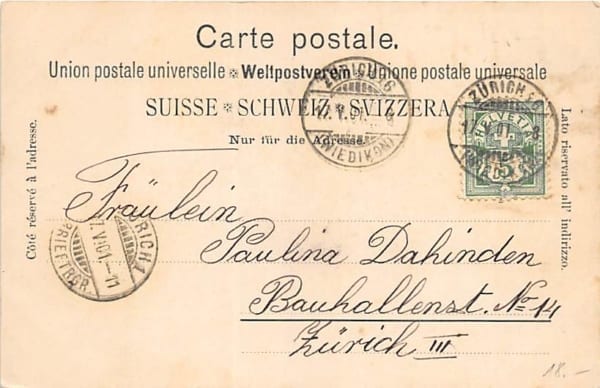 Carte postale.
Union postale universelle * Weltpostverein * Unione postale universale
SUISSE * SCHWEIZ * SVIZZERA
Nur für die Adresse.
Côté réservé à l'adresse.
Lato riservato all' indirizzo.
ZÜRICH 16
17. V. 01. 8
(WIEDIKON)
ZÜRICH 16
17. V. 01. 8
(WIEDIKON)
HELVETIA
5
ZÜRICH 1
17. V. 01.-11
BRIEFTRGR.
Fräulein
Paulina Dahinden
Bauhallenst. No 14
Zürich III
18.-